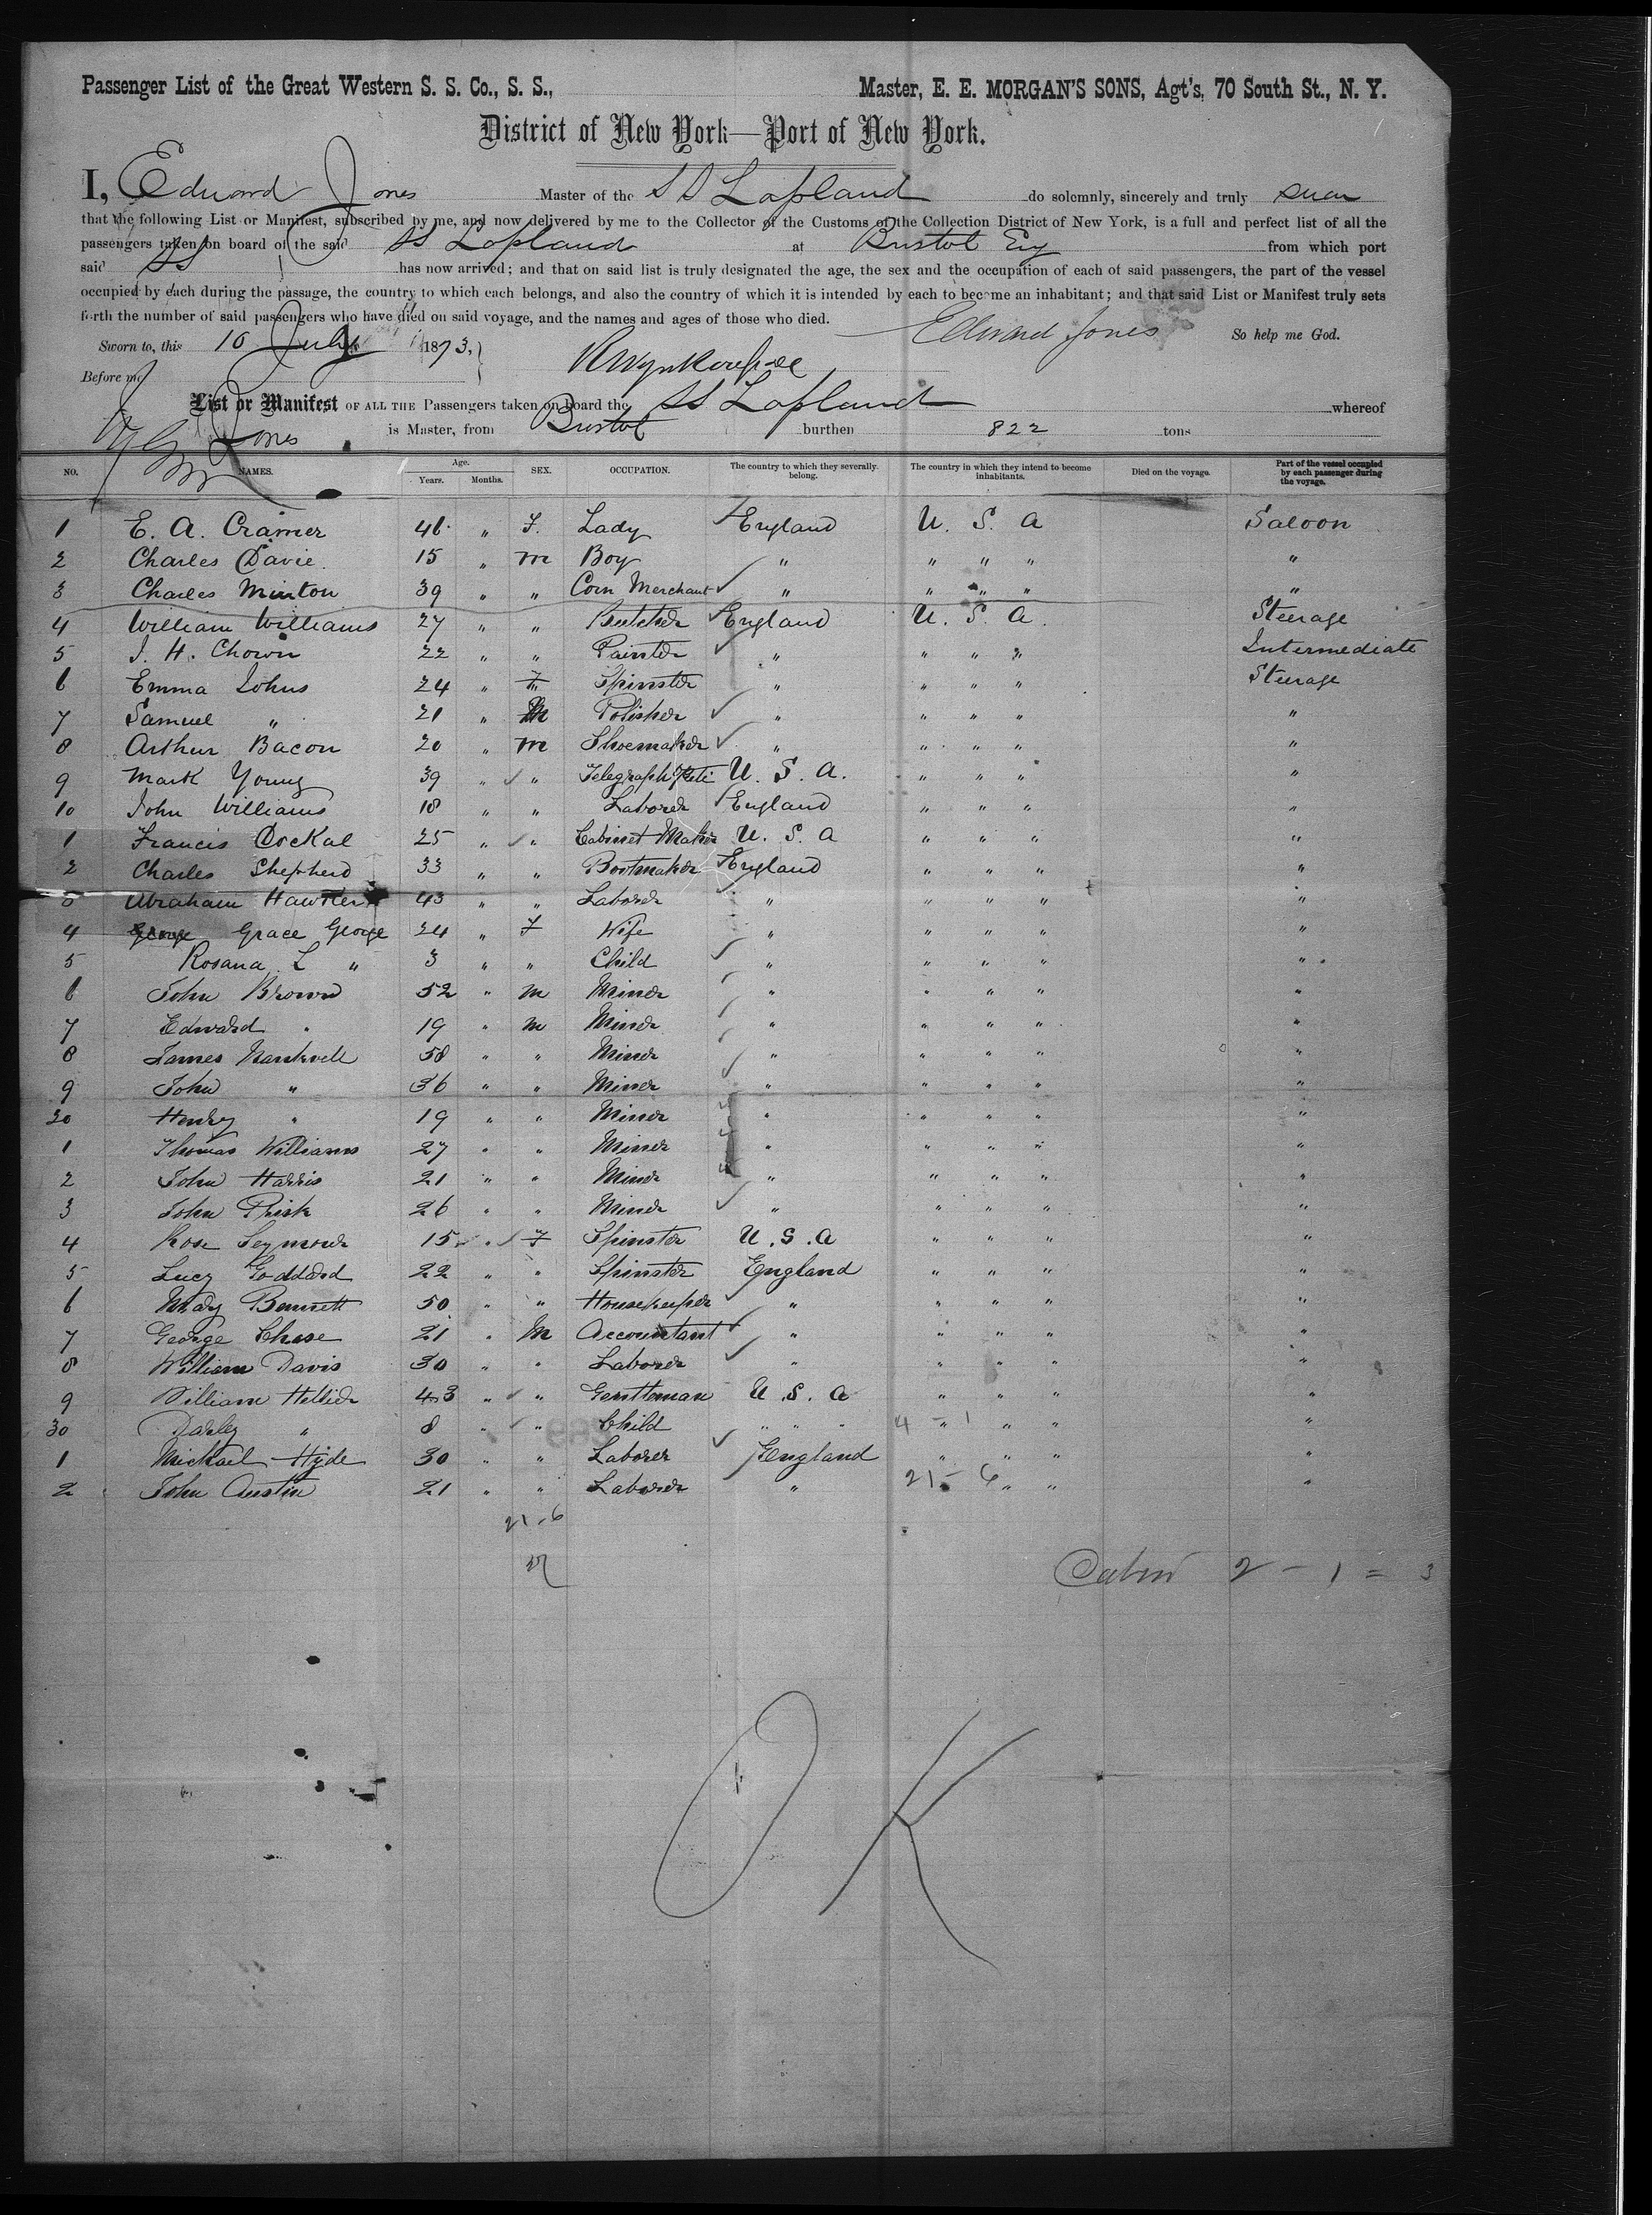 Passenger List of the Great Western S. S. Co., S. S., Master, E. E. MORGAN'S SONS, Agt's, 70 South St., N. Y.
District of New York—Port of New York.
I, Edward Jones Master of the SS Lapland do solemnly, sincerely and truly swear
that the following List or Manifest, subscribed by me, and now delivered by me to the Collector of the Customs of the Collection District of New York, is a full and perfect list of all the
passengers taken on board of the said SS Lapland at Bristol Eng from which port
said SS has now arrived; and that on said list is truly designated the age, the sex and the occupation of each of said passengers, the part of the vessel
occupied by each during the passage, the country to which each belongs, and also the country of which it is intended by each to become an inhabitant; and that said List or Manifest truly sets
forth the number of said passengers who have died on said voyage, and the names and ages of those who died.
Edward Jones So help me God.
Sworn to, this 10 July 1873,
Before me
List or Manifest OF ALL THE Passengers taken on board the SS Lapland whereof
Jones is Master, from Bristol burthen 822 tons
NO. NAMES. Age. Years. Months. SEX. OCCUPATION. The country to which they severally belong. The country in which they intend to become inhabitants. Died on the voyage. Part of the vessel occupied by each passenger during the voyage.
1 E. A. Cramer 46 " F. Lady England U. S. A Saloon
2 Charles Davie. 15 " m Boy " " " " "
3 Charles Minton 39 " " Corn Merchant " " " " "
4 William Williams 27 " " Butcher England U. S. A. Steerage
5 J. H. Chown 22 " " Painter " " " " Intermediate
6 Emma Johns 24 " F Spinster " " " " Steerage
7 Samuel " 21 " M Polisher " " " " "
8 Arthur Bacon 20 " m Shoemaker " " " " "
9 Mark Young 39 " " Telegraph U. S. A. " " " "
10 John Williams 18 " " Laborer England " " " "
1 Francis Dockal 25 " " Cabinet Maker U. S. A " " " "
2 Charles Shepherd 33 " " Bootmaker England " " " "
3 Abraham Hawker 43 " " Laborer " " " " "
4 George Grace George 24 " F Wife " " " " "
5 Rosana L " 3 " " Child " " " " "
6 John Brown 52 " m Miner " " " " "
7 Edward " 19 " m Miner " " " " "
8 James Nankivell 58 " " Miner " " " " "
9 John " 36 " " Miner " " " " "
20 Henry " 19 " " Miner " " " " "
1 Thomas Williams 27 " " Miner " " " " "
2 John Harris 21 " " Miner " " " " "
3 John Prisk 26 " " Miner " " " " "
4 Rose Seymour 15 " F Spinster U. S. A " " " "
5 Lucy Goddard 22 " " Spinster England " " " "
6 Mary Bennett 50 " " Housekeeper " " " " "
7 George Chase 21 " M Accountant " " " " "
8 William Davis 30 " " Laborer " " " " "
9 William Hellier 43 " " Gentleman U. S. A " " " "
30 " 8 " " Child " " " 4 - 1 " " "
1 Michael Hyde 30 " " Laborer England " " " "
2 John Austin 21 " " Laborer " 21 - 6 " " "
21-6
27
Cabin 2 - 1 = 3
OK